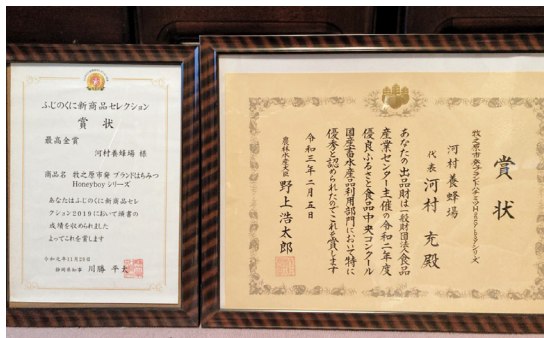 ふじのくに新商品セレクション
賞状
最高金賞
河村養蜂場 様
商品名 牧之原市発 ブランドはちみつ
Honeyboyシリーズ
あなたはふじのくに新商品セレ
クション2019において頭書の
成績を収められました
よってこれを賞します
令和元年11月28日
静岡県知事 川勝 平太
賞状
牧之原市発ブランドはちみつHoneyboyシリーズ
河村養蜂場
代表 河村 充殿
あなたの出品財は一般財団法人食品
産業センター主催の令和二年度
優良ふるさと食品中央コンクール
国産畜水産品利用部門において特に
優秀と認められたのでこれを賞します
令和三年二月五日
農林水産大臣 野上浩太郎